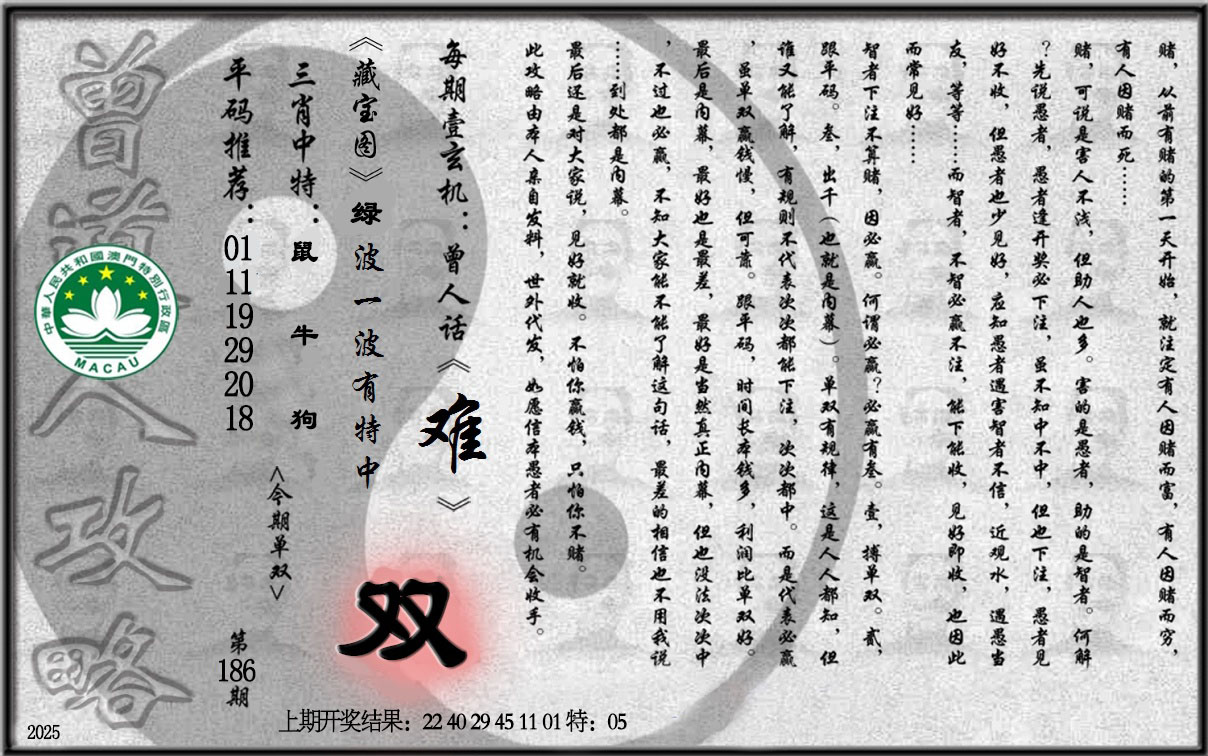 赌，从前有赌的第一天开始，就注定有人因赌而富，有人因赌而穷，
有人因赌而死……
赌，可说是害人不浅，但助人也多。害的是愚者，助的是智者。何解
？先说愚者，愚者逢开奖必下注，虽不知中不中，但也下注，愚者见
好不收，但愚者也少见好，应知愚者遇害智者不信，近观水，遇愚当
友，等等……而智者，不智必赢不注，能下能收，见好即收，也因此
而常见好……
智者下注不算赌，因必赢。何谓必赢？必赢有叁。壹，搏单双。贰，
跟平码。叁，出千（也就是内幕）。单双有规律，这是人人都知，但
谁又能了解，有规则不代表次次都能下注，次次都中。而是代表必赢
，虽单双赢钱慢，但可靠。跟平码，时间长本钱多，利润比单双好。
最后是内幕，最好也是最差，最好是当然真正内幕，但也没法次次中
，不过也必赢，不知大家能不能了解这句话，最差的相信也不用我说
……到处都是内幕。
最后还是对大家说，见好就收。不怕你赢钱，只怕你不赌。
此攻略由本人亲自发料，世外代发，如愿信本愚者必有机会收手。
每期壹玄机：曾人话《难》
《藏宝图》绿波一波有特中
双
三肖中特：鼠牛狗
<今期单双>
平码推荐：01 11 19 29 20 18
第186期
曾道人攻略
中華人民共和國澳門特別行政區
MACAU
上期开奖结果：22 40 29 45 11 01 特：05
2025